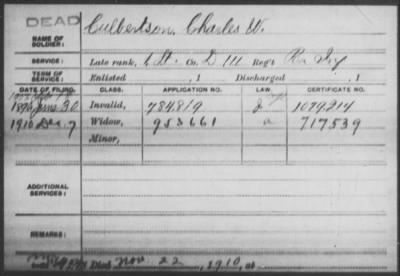 DEAD
Culbertson, Charles W.
NAME OF SOLDIER:
SERVICE: Late rank, 1 Lt. Co. D 111 Reg't Pa. Inf
TERM OF SERVICE: Enlisted , 1 Discharged , 1
DATE OF FILING. CLASS. APPLICATION NO. LAW. CERTIFICATE NO.
June 30 Invalid, 784819 1079214
1910 Dec. 7 Widow, 953661 a 717539
Minor,
ADDITIONAL SERVICES:
REMARKS:
Died Nov. 22, 1910, at